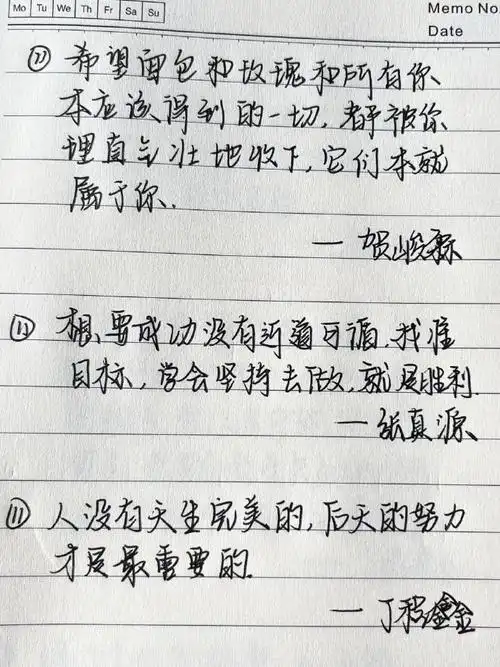 Mo Tu We Th Fr Sa Su
Memo No.
Date
⑰ 希望面包和玫瑰和所有你
本应该得到的一切,都被你
理直气壮地收下,它们本就
属于你.
— 贺峻霖
⑫ 想要成功没有近道可循,找准
目标,学会坚持去做,就是胜利.
— 张真源
⑪ 人没有天生完美的,后天的努力
才是最重要的.
— 丁程鑫